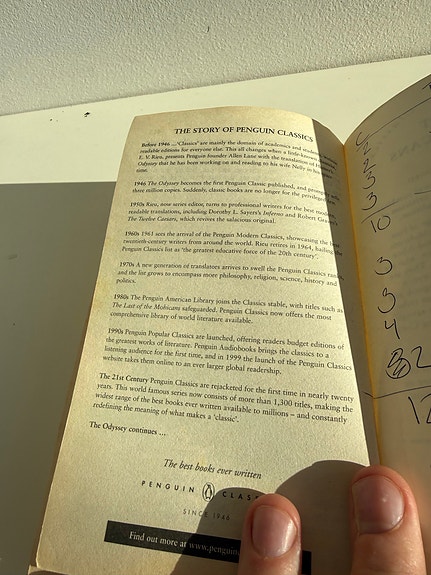 THE STORY OF PENGUIN CLASSICS
Before 1946 ...'Classics' are mainly the domain of academics and
readable editions for everyone else. This all changes when a little-known
E. V. Rieu, presents Penguin founder Allen Lane with the translation of
Odyssey that he has been working on and reading to his wife Nelly in his
time.
1946 The Odyssey becomes the first Penguin Classic published, and
three million copies. Suddenly, classic books are no longer for the
1950s Rieu, now series editor, turns to professional writers for the best
readable translations, including Dorothy L. Sayers's Inferno and Robert
The Twelve Caesars, which revives the salacious original.
1960s 1961 sees the arrival of the Penguin Modern Classics, showcasing the
twentieth-century writers from around the world. Rieu retires in 1964, hailing
Penguin Classics list as 'the greatest educative force of the 20th century'.
1970s A new generation of translators arrives to swell the Penguin Classics
and the list grows to encompass more philosophy, religion, science, history and
politics.
1980s The Penguin American Library joins the Classics stable, with titles such as
The Last of the Mohicans safeguarded. Penguin Classics now offers the most
comprehensive library of world literature available.
1990s Penguin Popular Classics are launched, offering readers budget editions of
the greatest works of literature. Penguin Audiobooks brings the classics to a
listening audience for the first time, and in 1999 the launch of the Penguin Classics
website takes them online to an ever larger global readership.
The 21st Century Penguin Classics are rejacketed for the first time in nearly twenty
years. This world famous series now consists of more than 1,300 titles, making the
widest range of the best books ever written available to millions – and constantly
redefining the meaning of what makes a 'classic'.
The Odyssey continues ...
The best books ever written
PENGUIN CLASS
SINCE 1946
Find out more at www.penguin
C
2
2
3
3
10
3
3
4
2
12